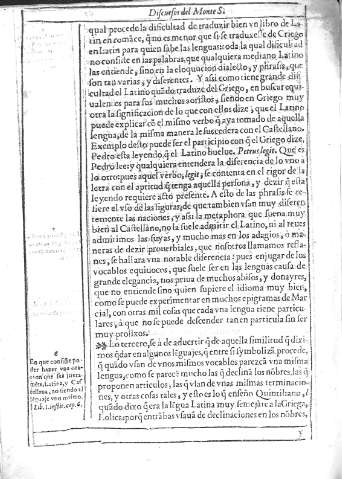 Discursos del Monte S.
qual procede la dificultad de traduzir bien vn libro de La-
tin en romãce, q̃ no es menor que si se traduxesse de Griego
en Latin para quien sabe las lenguas: toda la qual dificultad
no consiste en las palabras, que qualquiera mediano Latino
las entiende, sino en la eloquucion, dialecto, y phrasis, que
son tan varias, y diferentes. Y assi como tiene grande difi-
cultad el Latino quãdo traduze del Griego, en buscar equi-
ualentes para sus muchos aoristos, siendo en Griego muy
otra la significacion de lo que con ellos dize, que el Latino
puede explicar cõ el mismo verbo q̃ aya tomado de aquella
lengua, de la misma manera le sucedera con el Castellano.
Exemplo desto puede ser el participio con q̃ el Griego dize,
Pedro esta leyendo, q̃ el Latino buelue. Petrus legit. Que es
Pedro lee: y qualquiera entendera la diferencia de lo vno a
lo otro: pues aquel verbo, legit, se contenta en el rigor de la
letra con el aptitud q̃ tenga aquella persona, y dezir q̃ està
leyendo requiere acto presente. A esto de las phrasis se re-
fiere el vso de las figuras, de que tambien vsan muy diferen-
temente las naciones, y assi la metaphora que suena muy
bien al Castellano, no la suele adm̃itir el Latino, ni al reues
admitimos las suyas, y mucho mas en los adagios, ò ma-
neras de dezir prouerbiales, que nosotros llamamos refra-
nes, se hallara vna notable diferencia: pues en jugar de los
vocablos equiuocos, que suele ser en las lenguas causa de
grande elegancia, nos priua de muchos abisos, y donayres,
que no entiende sino quien supiere el idioma muy bien,
como se puede experimentar en muchos epigramas de Mar-
cial, con otras mil cosas que cada vna lengua tiene particu-
lares, à que no se puede descender tan en particular sin ser
muy prolixos.
Lo tercero, se à de aduertir q̃ de aquella similitud q̃ dixi-
mos q̃ dar en algunos lẽguajes, q̃ entre si symbolizã, procede,
q̃ quãdo vsan de vnos mismos vocablos parezca vna misma
lengua, como se parecẽ mucho las q̃ declinã los nõbres, las q̃
proponen articulos, las q̃ vsan de vnas mismas terminacio-
nes, y otras cosas tales, y esto es lo q̃ enseño Quintiliano,
quãdo dixo q̃ era la lẽgua Latina muy semejãte a la Griega,
Eolica: porq̃ entrãbas vsauã de declinaciones en los nõbres,
6
En que consiste po-
der hazer vna ora-
cion que sea junta-
mẽte, Latina, y Cas-
tellana, no siendo el
lẽguaje vno mismo.
Lib. 1. instit. cap. 6.